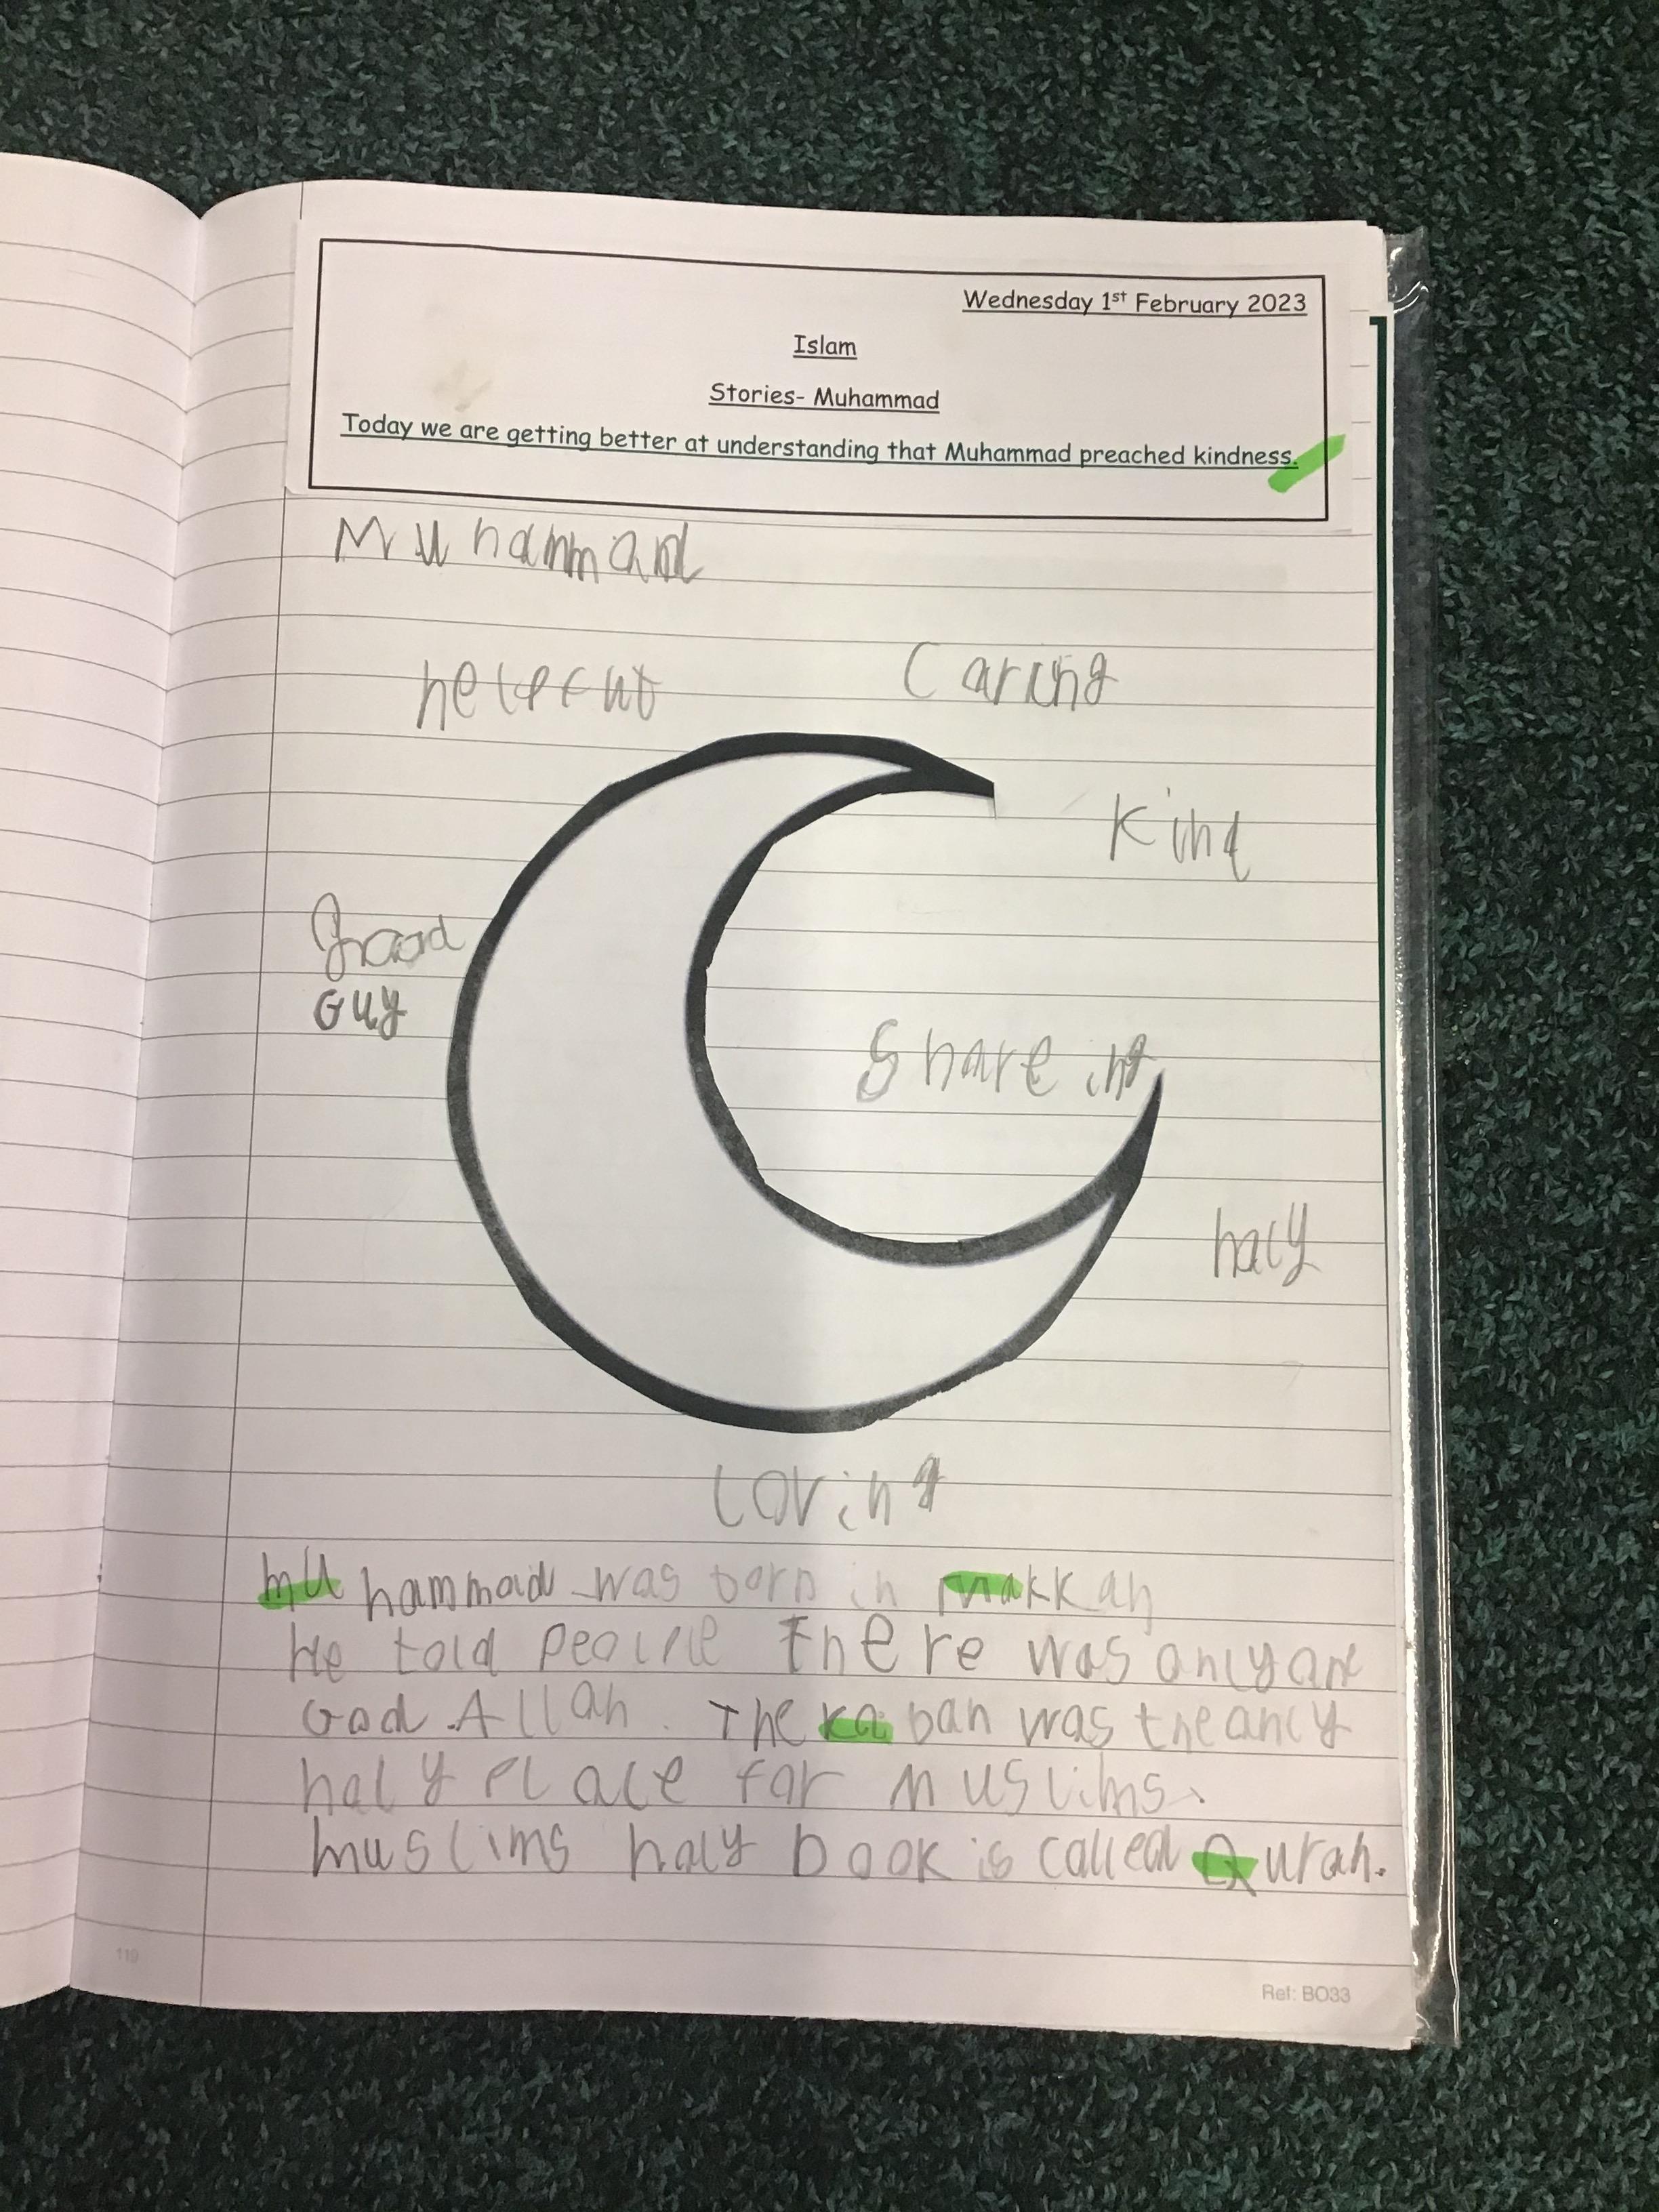 Wednesday 1st February 2023
Islam
Stories- Muhammad
Today we are getting better at understanding that Muhammad preached kindness.
Muhammad
helpful
Caring
Kind
Good
Guy
Shareing
holy
Loving
muhammad was born in makkah
He told people there was only one
God Allah. The kabah was the only
holy place for muslims.
muslims holy book is called Quran.
119
Ref: BO33